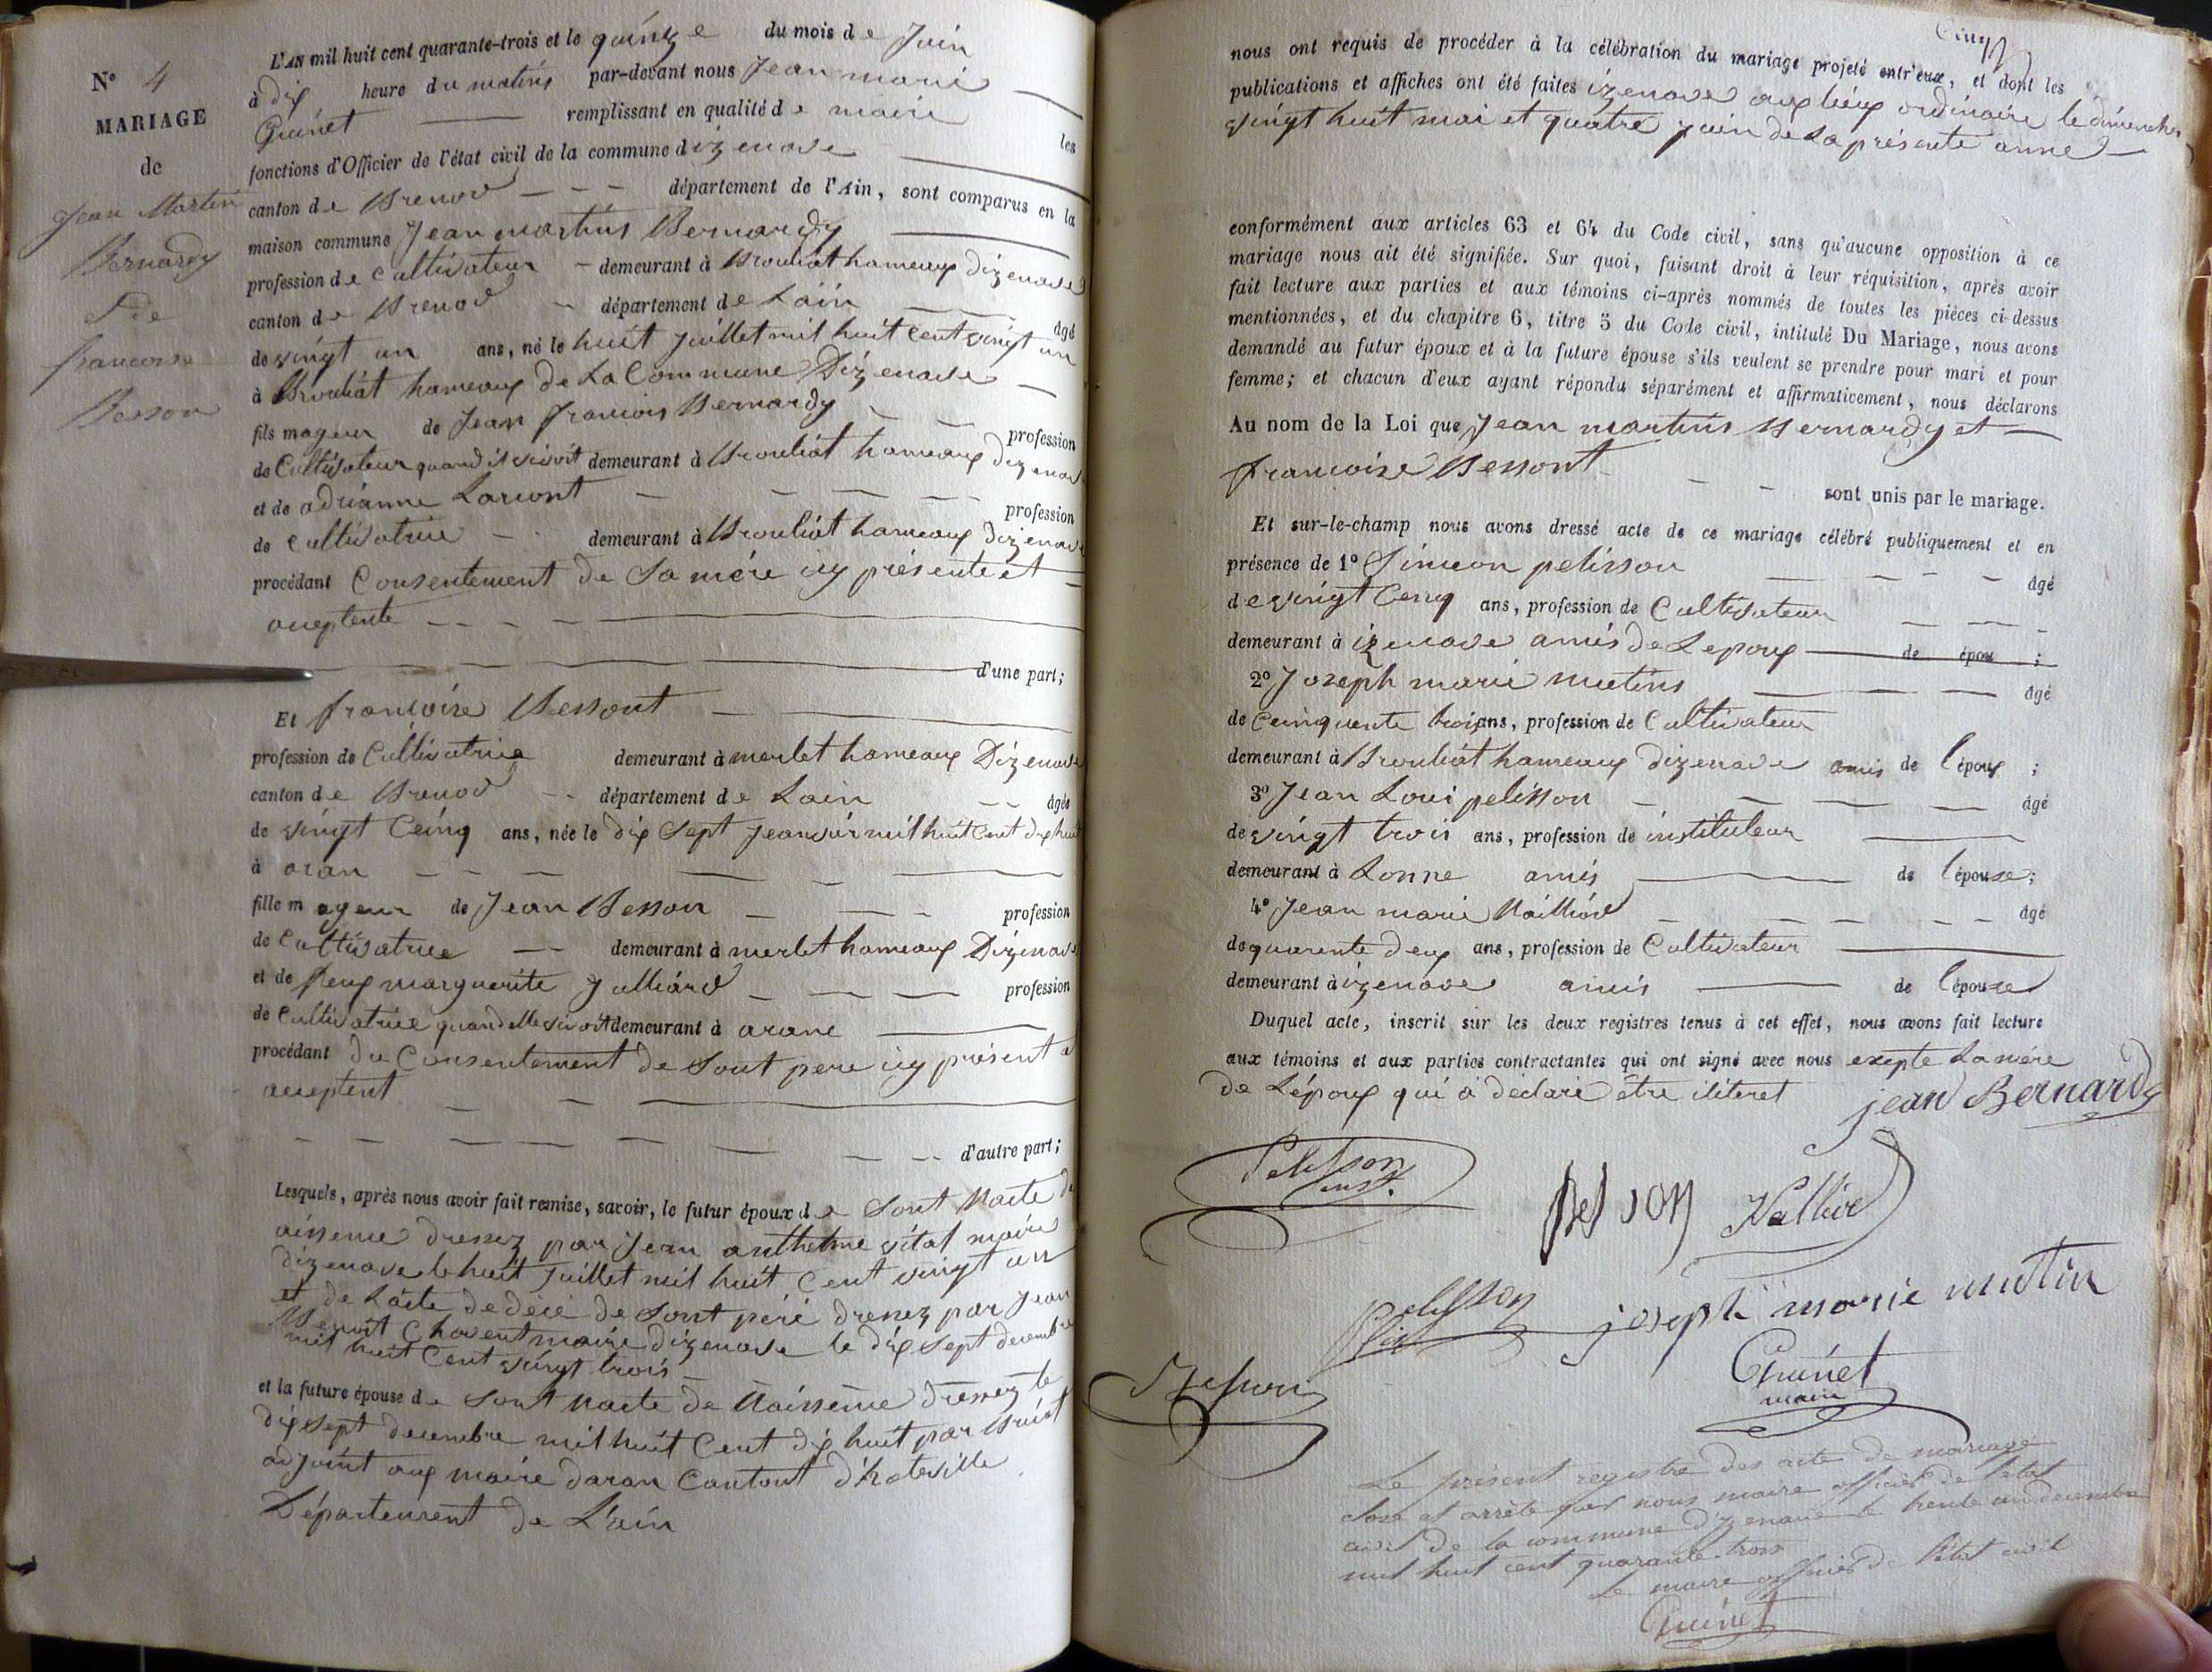 N° 4
MARIAGE
de
Jean Martin
Bernardy
Et de
francoise
Besson
L'AN mil huit cent quarante-trois et le quinze du mois de Juin
à dix heure du matins par-devant nous Jean marie
Guinet remplissant en qualité de maire les
fonctions d'Officier de l'état civil de la commune dizenave
canton de Brenod département de l'Ain, sont comparus en la
maison commune Jean martins Bernardy
profession de Cultivateur demeurant à Brouliat hameaux dizenave
canton de Brenod département de Lain âgé
de vingt un ans, né le huit Juillet mil huit Cent vingt un
à Brouliat hameaux de La Commune Dizenave
fils mageur de Jean francois Bernardy profession
de Cultivateur quand il vivoit demeurant à Brouliat hameaux dizenave
et de adrianne Laront profession
de Cultivatrice demeurant à Brouliat hameaux dizenave
procédant Consentement de Sa mére icy présente et
aceptente
d'une part;
Et francoise Bessont
profession de Cultivatrice demeurant à merlet hameaux Dizenave
canton de Brenod département de Lain âgée
de vingt Ceinq ans, née le dix Sept Jeanvier mil huit Cent dix huit
à aran
fille mageur de Jean Besson profession
de Cultivatrice demeurant à merlet hameaux Dizenave
et de feux marguerite Julliard profession
de Cultivatrice quand elle vivoit demeurant à arane
procédant du Consentement de Sont pere icy présent et
aceptent
d'autre part;
Lesquels, après nous avoir fait remise, savoir, le futur époux de Sont Nacte de
aissence dressez par Jean anthelme vital maire
dizenave le huit Juillet mil huit Cent vingt un
et de Lacte de décé de Sont péré dressez par Jean
Benoit Charent maire dizenave le dix Sept decembre
mil huit Cent vingt trois
et la future épouse de Sont Nacte de Naissence dressez le
dix Sept decembre mil huit Cent dix huit par
adjoint aux maire daran Cantont d'hoteville
Département de L'ain
Cinq
nous ont requis de procéder à la célébration du mariage projeté entr'eux, et dont les
publications et affiches ont été faites izenave aux lieux ordinaire le dimenche
vingt huit mai et quatre juin de La présente anné
conformément aux articles 63 et 64 du Code civil, sans qu'aucune opposition à ce
mariage nous ait été signifiée. Sur quoi, faisant droit à leur réquisition, après avoir
fait lecture aux parties et aux témoins ci-après nommés de toutes les pièces ci-dessus
mentionnées, et du chapitre 6, titre 5 du Code civil, intitulé Du Mariage, nous avons
demandé au futur époux et à la future épouse s'ils veulent se prendre pour mari et pour
femme; et chacun d'eux ayant répondu séparément et affirmativement, nous déclarons
Au nom de la Loi que Jean martins Bernardy et
francoise Bessont
sont unis par le mariage.
Et sur-le-champ nous avons dressé acte de ce mariage célébré publiquement et en
présence de 1° Simeon pelisson âgé
de vingt Cenq ans, profession de Cultivateur
demeurant à izenave amis de Lepoux de épou ;
2° Joseph marie mutins âgé
de Ceinquente trois ans, profession de Cultivateur
demeurant à Brouliat hameaux dizenave amis de lépoux ;
3° Jean Loui pelisson âgé
de vingt trois ans, profession de instituteur
demeurant à Lonne amis de lépouse;
4° Jean marie Nalliod âgé
de quarente deux ans, profession de Cultivateur
demeurant à izenave amis de lépouse
Duquel acte, inscrit sur les deux registres tenus à cet effet, nous avons fait lecture
aux témoins et aux parties contractantes qui ont signé avec nous exepte La mére
de L'époux qui a declaré être iliteret jean Bernardy
Pelisson
inst.
Besson Nalliod
Pelisson joseph marie mutin
Besson Guinet
maire
Le présent registre des acte de mariage
clos et arrêté par nous maire officier de l'état
civil de la commune d'izenave le trente un decembre
mil huit cent quarante-trois
Le maire officier de l'état civil
Guinet